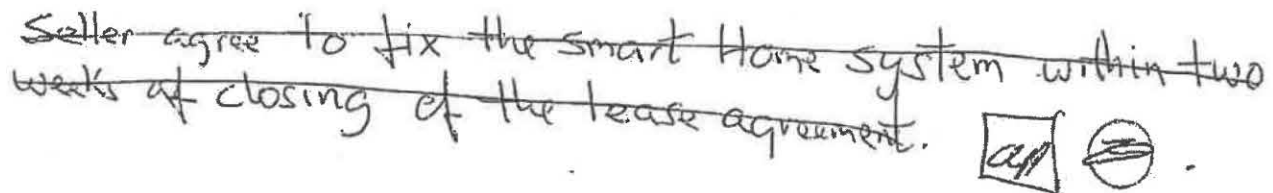 Seller agree to fix the smart Home system within two
weeks of closing of the lease agreement.